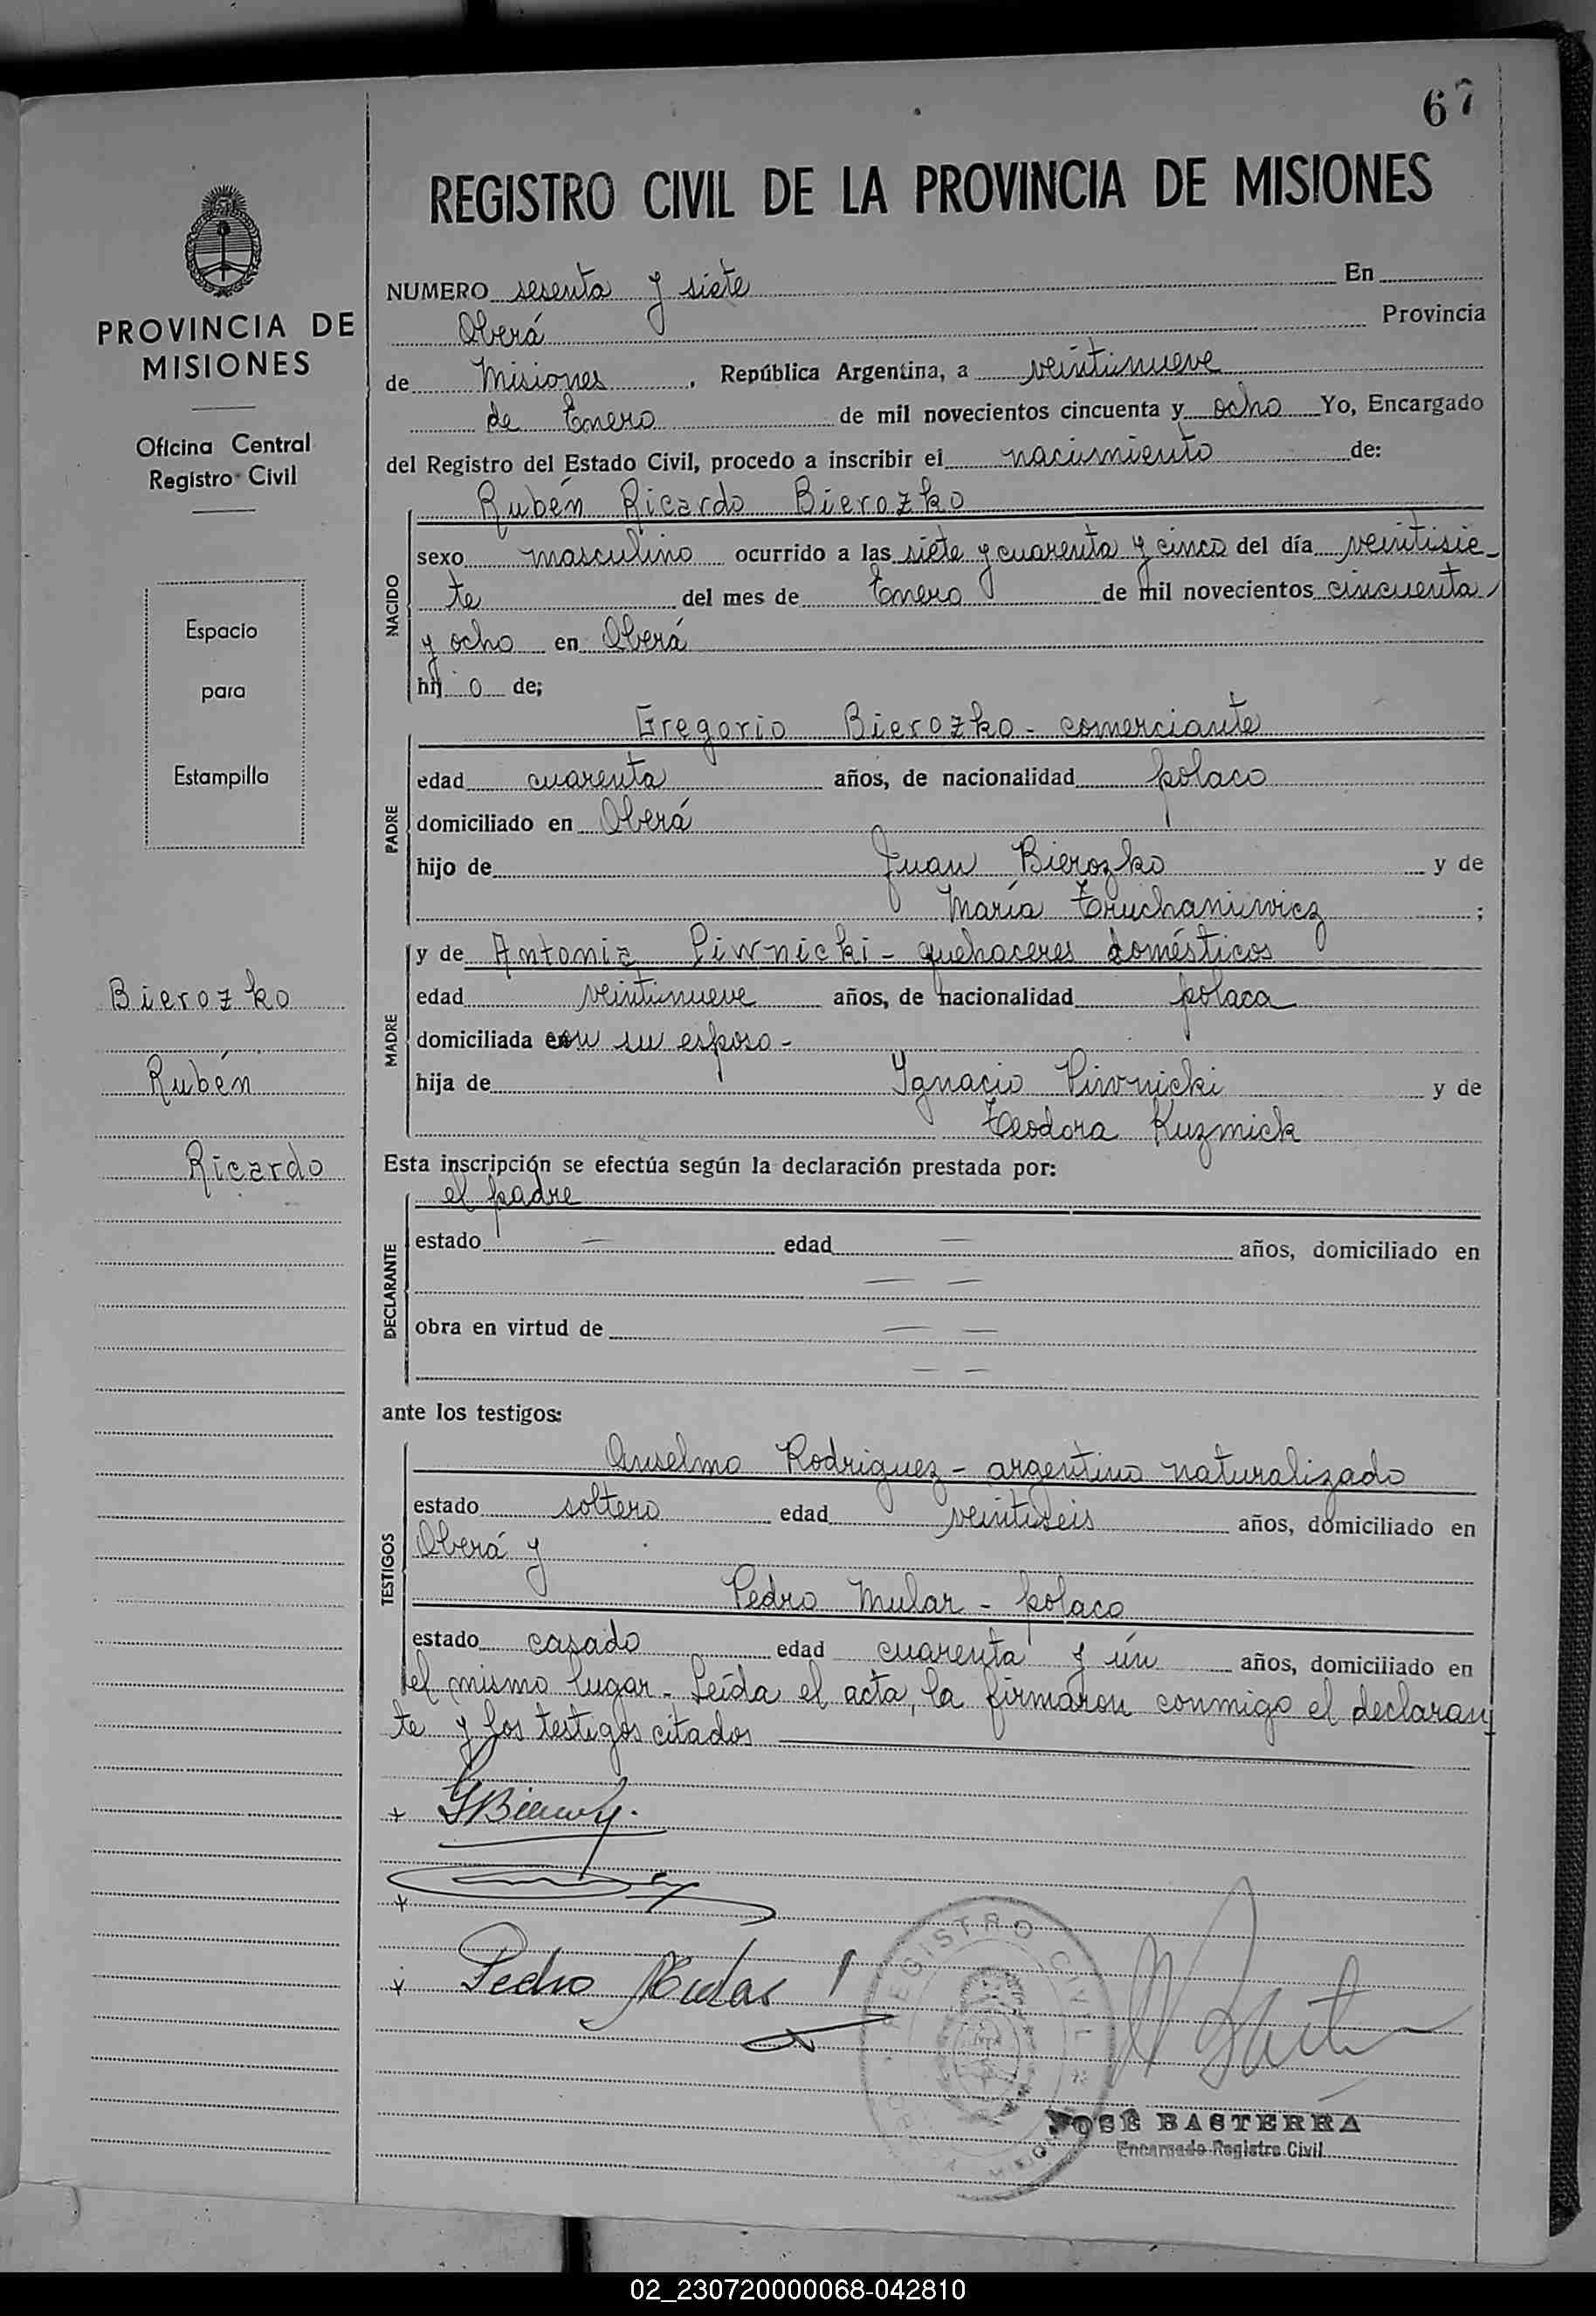 67
REGISTRO CIVIL DE LA PROVINCIA DE MISIONES
PROVINCIA DE
MISIONES
Oficina Central
Registro Civil
Espacio
para
Estampilla
Bierozko
Rubén
Ricardo
NUMERO sesenta y siete En
Oberá Provincia
de Misiones, República Argentina, a veintinueve
de Enero de mil novecientos cincuenta y ocho Yo, Encargado
del Registro del Estado Civil, procedo a inscribir el nacimiento de:
NACIDO
Rubén Ricardo Bierozko
sexo masculino ocurrido a las siete y cuarenta y cinco del día veintisie-
te del mes de Enero de mil novecientos cincuenta
y ocho en Oberá
hij o de;
PADRE
Gregorio Bierozko - comerciante
edad cuarenta años, de nacionalidad polaco
domiciliado en Oberá
hijo de Juan Bierozko y de
María Truchaniewicz ;
MADRE
y de Antonia Piwnicki - quehaceres domésticos
edad veintinueve años, de nacionalidad polaca
domiciliada con su esposo -
hija de Ignacio Piwnicki y de
Teodora Kuzmick
Esta inscripción se efectúa según la declaración prestada por:
DECLARANTE
el padre
estado — edad — años, domiciliado en
— —
obra en virtud de — —
— —
ante los testigos:
TESTIGOS
Anselmo Rodriguez - argentino naturalizado
estado soltero edad veintiseis años, domiciliado en
Oberá y
Pedro Mular - polaco
estado casado edad cuarenta y ún años, domiciliado en
el mismo lugar - Leída el acta, la firmaron conmigo el declaran
te y los testigos citados
Pedro Mular
REGISTRO CIVIL
JOSÉ BASTERRA
Encargado Registro Civil
02_230720000068-042810